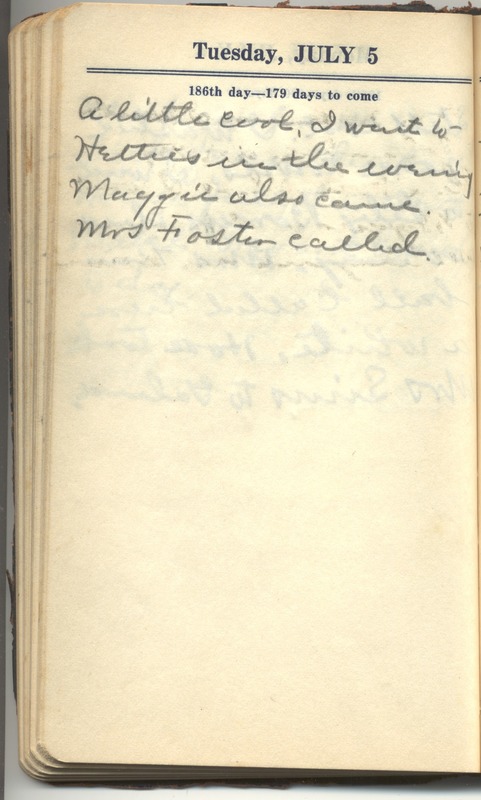 Tuesday, JULY 5
186th day—179 days to come
A little cool, I went to
Hetties in the evening
Maggie also came.
Mrs Foster called.